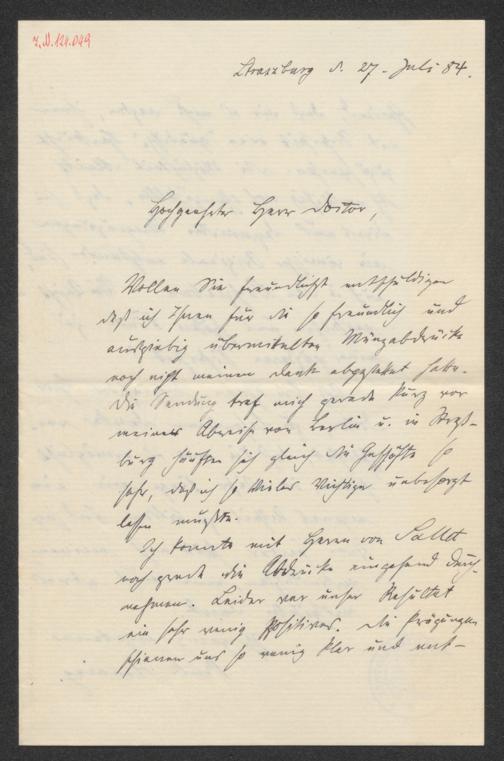 I.N. 124.049
Strassburg d. 27. Juli 84.
Hochgeehrter Herr Doctor,
Wollen Sie freundlichst entschuldigen
daß ich Ihnen für die so freundlich und
ausgiebig übermittelten Münzabdrücke
noch nicht meinen Dank abgestattet habe.
Die Sendung traf mich gerade kurz vor
meiner Abreise von Berlin u. in Strass-
burg häuften sich gleich die Geschäfte so
sehr, daß ich so Vieles Wichtige unbesorgt
lassen mußte.
Ich konnte mit Herrn von Sallet
noch gerade die Abdrücke eingehend durch
nehmen. Leider war unser Resultat
ein sehr wenig Positives. Die Prägungen
schienen uns so wenig klar und ent-